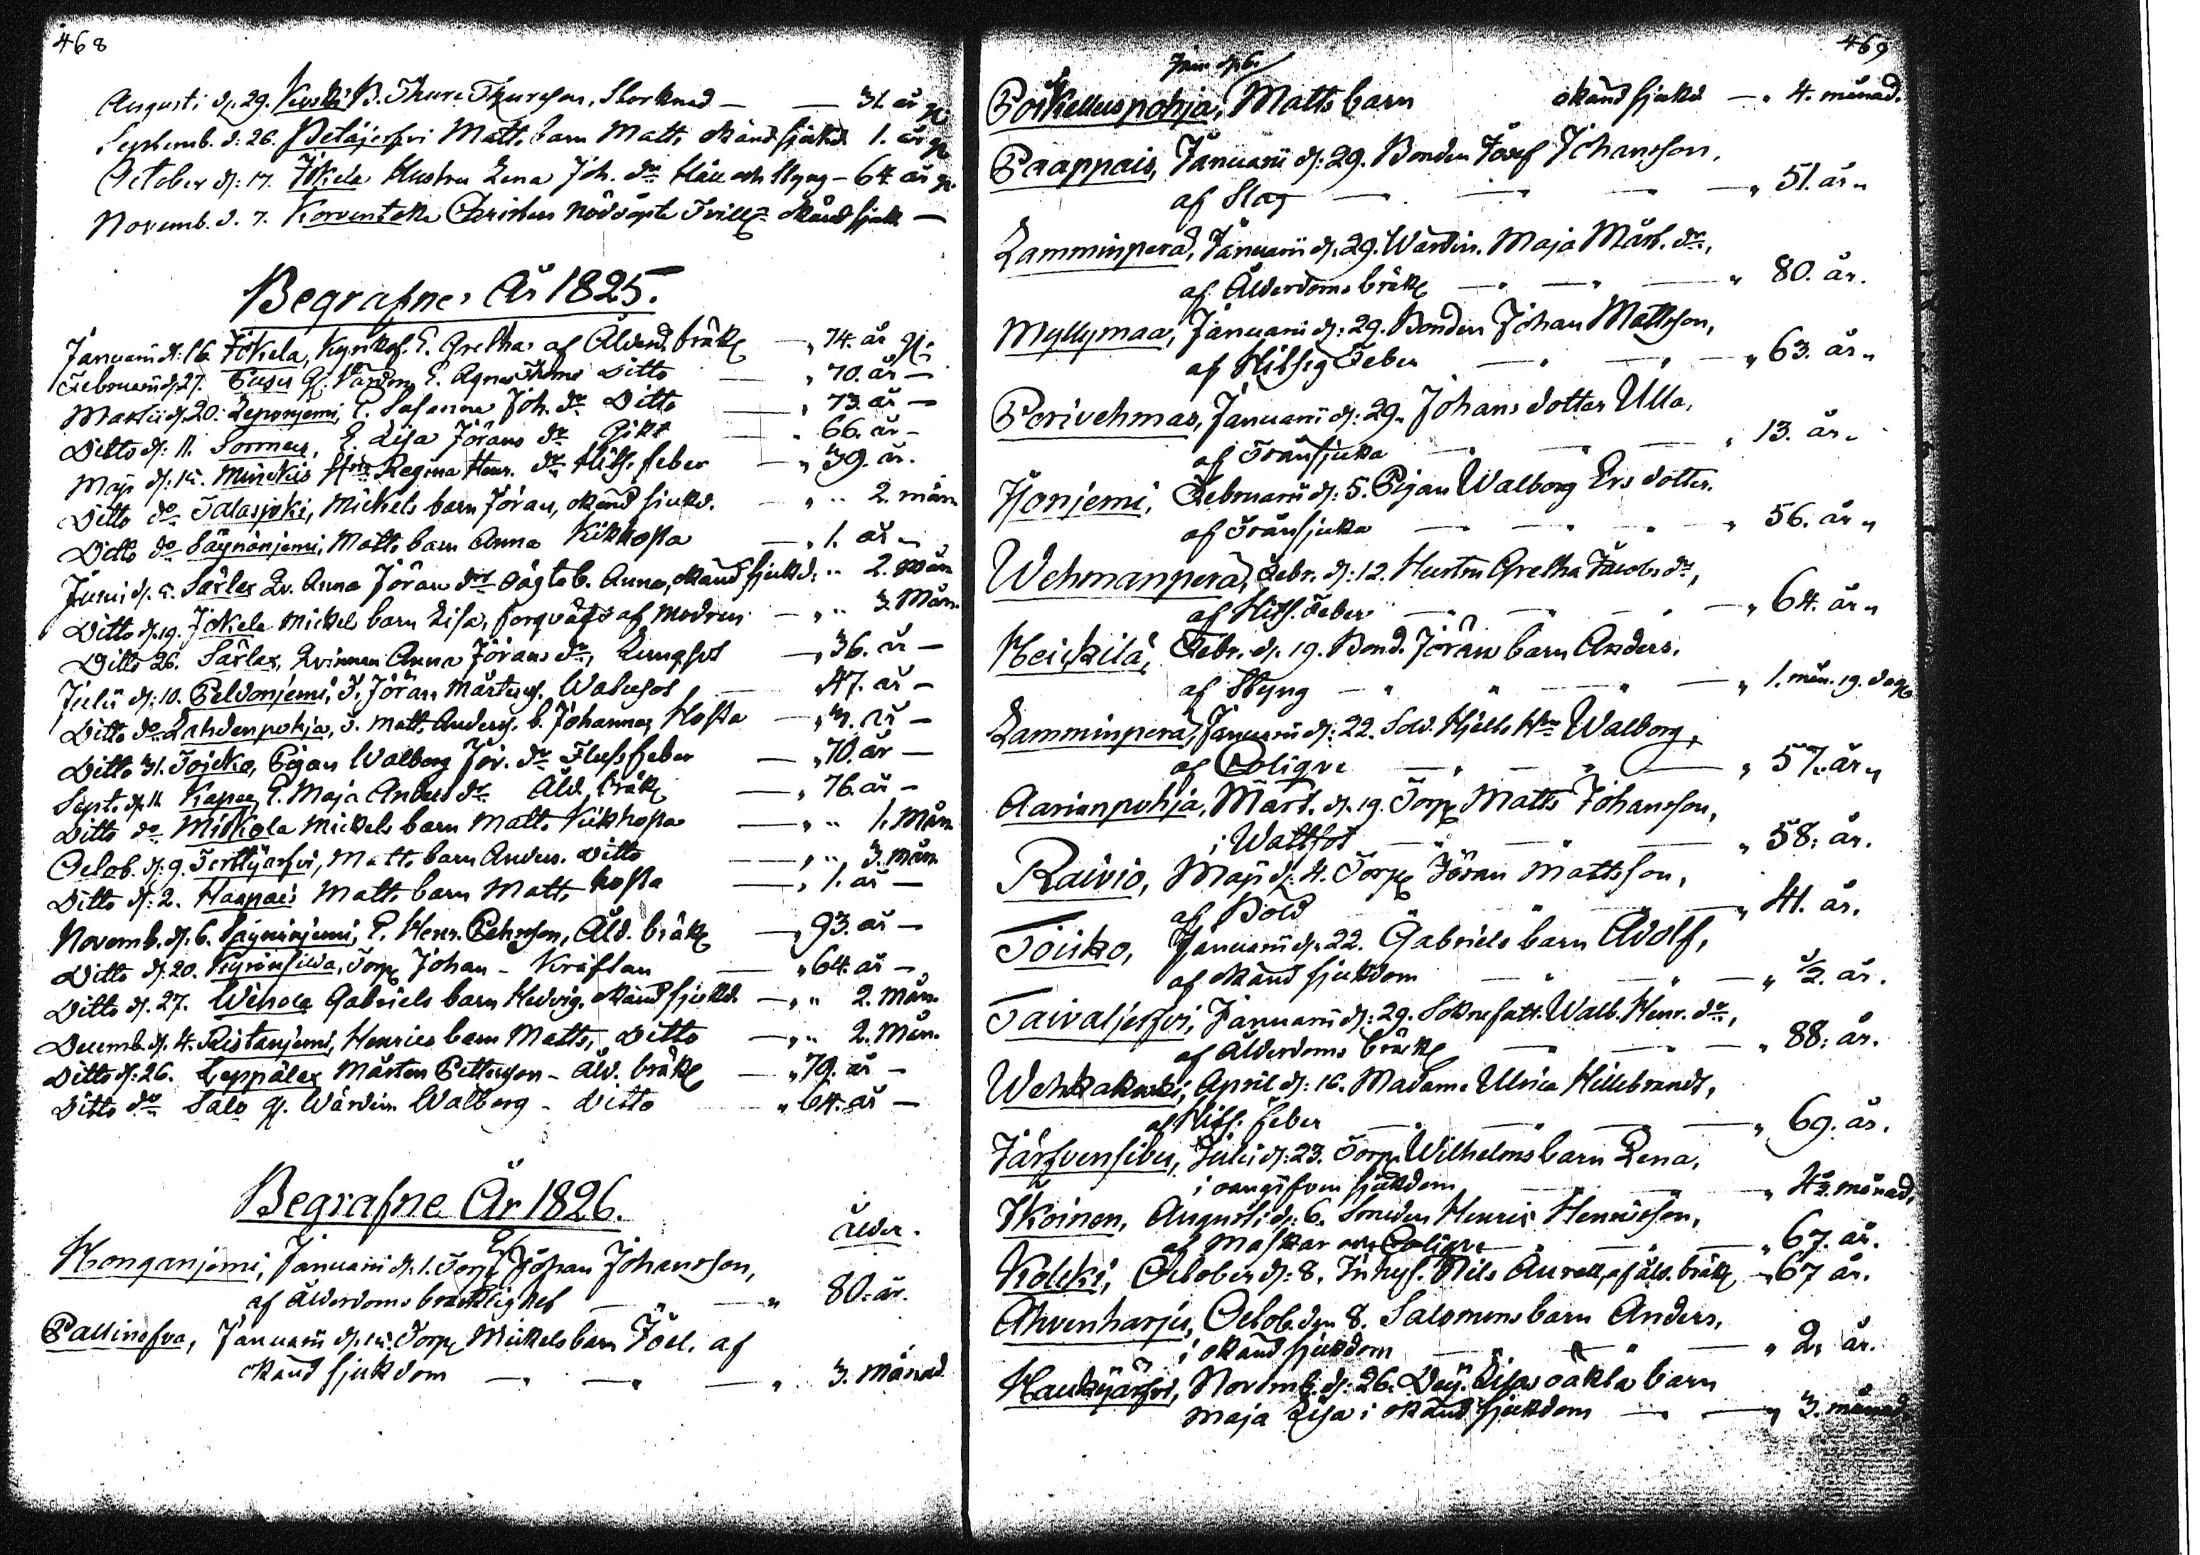 468
Augusti d. 29. B. Thure Thuresson, Storknad — — 31. år
Septemb. d. 26. Petäjerfvi Matts barn Matts okänd sjukd. 1. år
October d. 17. Jokela Hustru Lena Joh. dr Håll och Styng — 64 år
Novemb. d. 7. nöddöpte okänd sjuk —
Begrafne År 1825.
Januarii d. 16. Jokela, E. Gretha af Ålderd. bräkl — 74. år
Februarii d. 27. E. Agnes Ditto — 70. år —
Martii d. 20. Leponjemi, E. Susanna Joh. dr Ditto — 73. år —
Ditto d. 11. Sormeus, E. Lisa Jörans dr Gikt — 66. år —
Maji d. 15. Regina Henr. dr Hits. feber — 39. år.
Ditto do Talasjoki, Mickels barn Jöran, okänd sjukd. — 2. mån
Ditto do Säynönjemi, Matts barn Anna Kikhosta — 1. år —
Junii d. 5. Särlax Qv. Anna Jöran dr oägta b. Anna, okänd sjukd. 2. mån
Ditto d. 19. Jokela Mickels barn Lisa, af modren — 3. Mån.
Ditto 26. Särlax, Qvinnan Anna Jörans dr, Lungsot — 36. år —
Julii d. 10. Peldonjemi, Jöran Mårtens. — 47. år —
Ditto do Lahdenpohja, Matts Anders. b. Johannes Hosta — år —
Ditto 31. Toisko, Pigan Walborg Jör. dr Flussfeber — 70. år —
Sept. d. 11 E. Maja Anders dr Åld. bräkl — 76. år —
Ditto do Mickola Mickels barn Matts Kikhosta — 1. Mån
Octob. d. 9. Matts barn Anders. Ditto — 3. mån
Ditto d. 2. Haapais Matts barn Matts hosta — 1. år —
Novemb. d. 6. Säynönjemi, E. Henr. Åld. bräkl — 93. år —
Ditto d. 20. Torp Johan — Kräftan — 64. år —
Ditto d. 27. Gabriels barn Hedvig. okänd sjukd. — 2. Mån.
Decemb. d. 4. Ristanjemi, Henrics barn Matts, Ditto — 2. Mån.
Ditto d. 26. Leppälex Mårten Pettersson — Åld. bräkl — 79. år —
Ditto do Salo Wärdin Walborg — Ditto — 64. år —
Begrafne År 1826.
ålder.
Honganjemi, Januarii d. 1. Torp Johan Johansson,
af ålderdoms bräcklighet — 80. år.
Januarii d. Torp Mickels barn Joel. af
okänd sjukdom — 3. Månad
469
Matts barn okänd sjukd — 4. månad.
Paappais, Januarii d. 29. Bonden Josef Johansson,
af Slag — 51. år
Lamminperä, Januarii d. 29. Wärdin. Maja Mårt. dr,
af Ålderdoms bräkl — 80. år.
Myllymaa, Januarii d. 29. Bonden Johan Mattsson,
af Hitsig Feber — 63. år
Perivehmas, Januarii d. 29. Johans dotter Ulla,
af Trånsjuka — 13. år.
Honjemi, Februarii d. 5. Pigan Walborg Ers dotter.
af Trånsjuka — 56. år
Wehmanperä, Febr. d. 12. Hustru Gretha Jacobs dr,
af Hits. Feber — 64. år
Heickilä, Febr. d. 19. Bond. Jörans barn Anders.
af Styng — 1. mån. 19. dag
Lamminperä, Januarii d. 22. Sold. Walborg,
af Colique — 57. år
Aarionpohja, Mart. d. 19. Torp Matts Johansson,
i Wattsot — 58. år.
Raivio, Maji d. 4. Torp Jöran Mattsson,
af Böld — 41. år.
Toisko, Januarii d. 22. Gabriels barn Adolf,
af okänd sjukdom — 1/2. år.
Taivaljerfvi, Januarii d. 29. Soknefatt. Walb. Henr. dr,
af Ålderdoms bräckl — 88. år.
April d. 16. Madame Ulrica Hillebrandt,
af Hits. feber — 69. år.
Järfvensivu, Julii d. 23. Torp. Wilhelms barn Lena,
i oangifven sjukdom — 4 1/2. månad,
Ikoinen, Augusti d. 6. Henric Henricsson,
af Maskar och Colique — 67. år.
Kolcki, October d. 8. Inhys. Nils af åld. bräkl — 67 år.
Ahvenharju, Octob. den 8. Salomons barn Anders,
i okänd sjukdom — 2. år.
Haukijärfvi, Novemb. d. 26. Lisas oäkta barn
Maja Lisa i okänd sjukdom — 3. månad